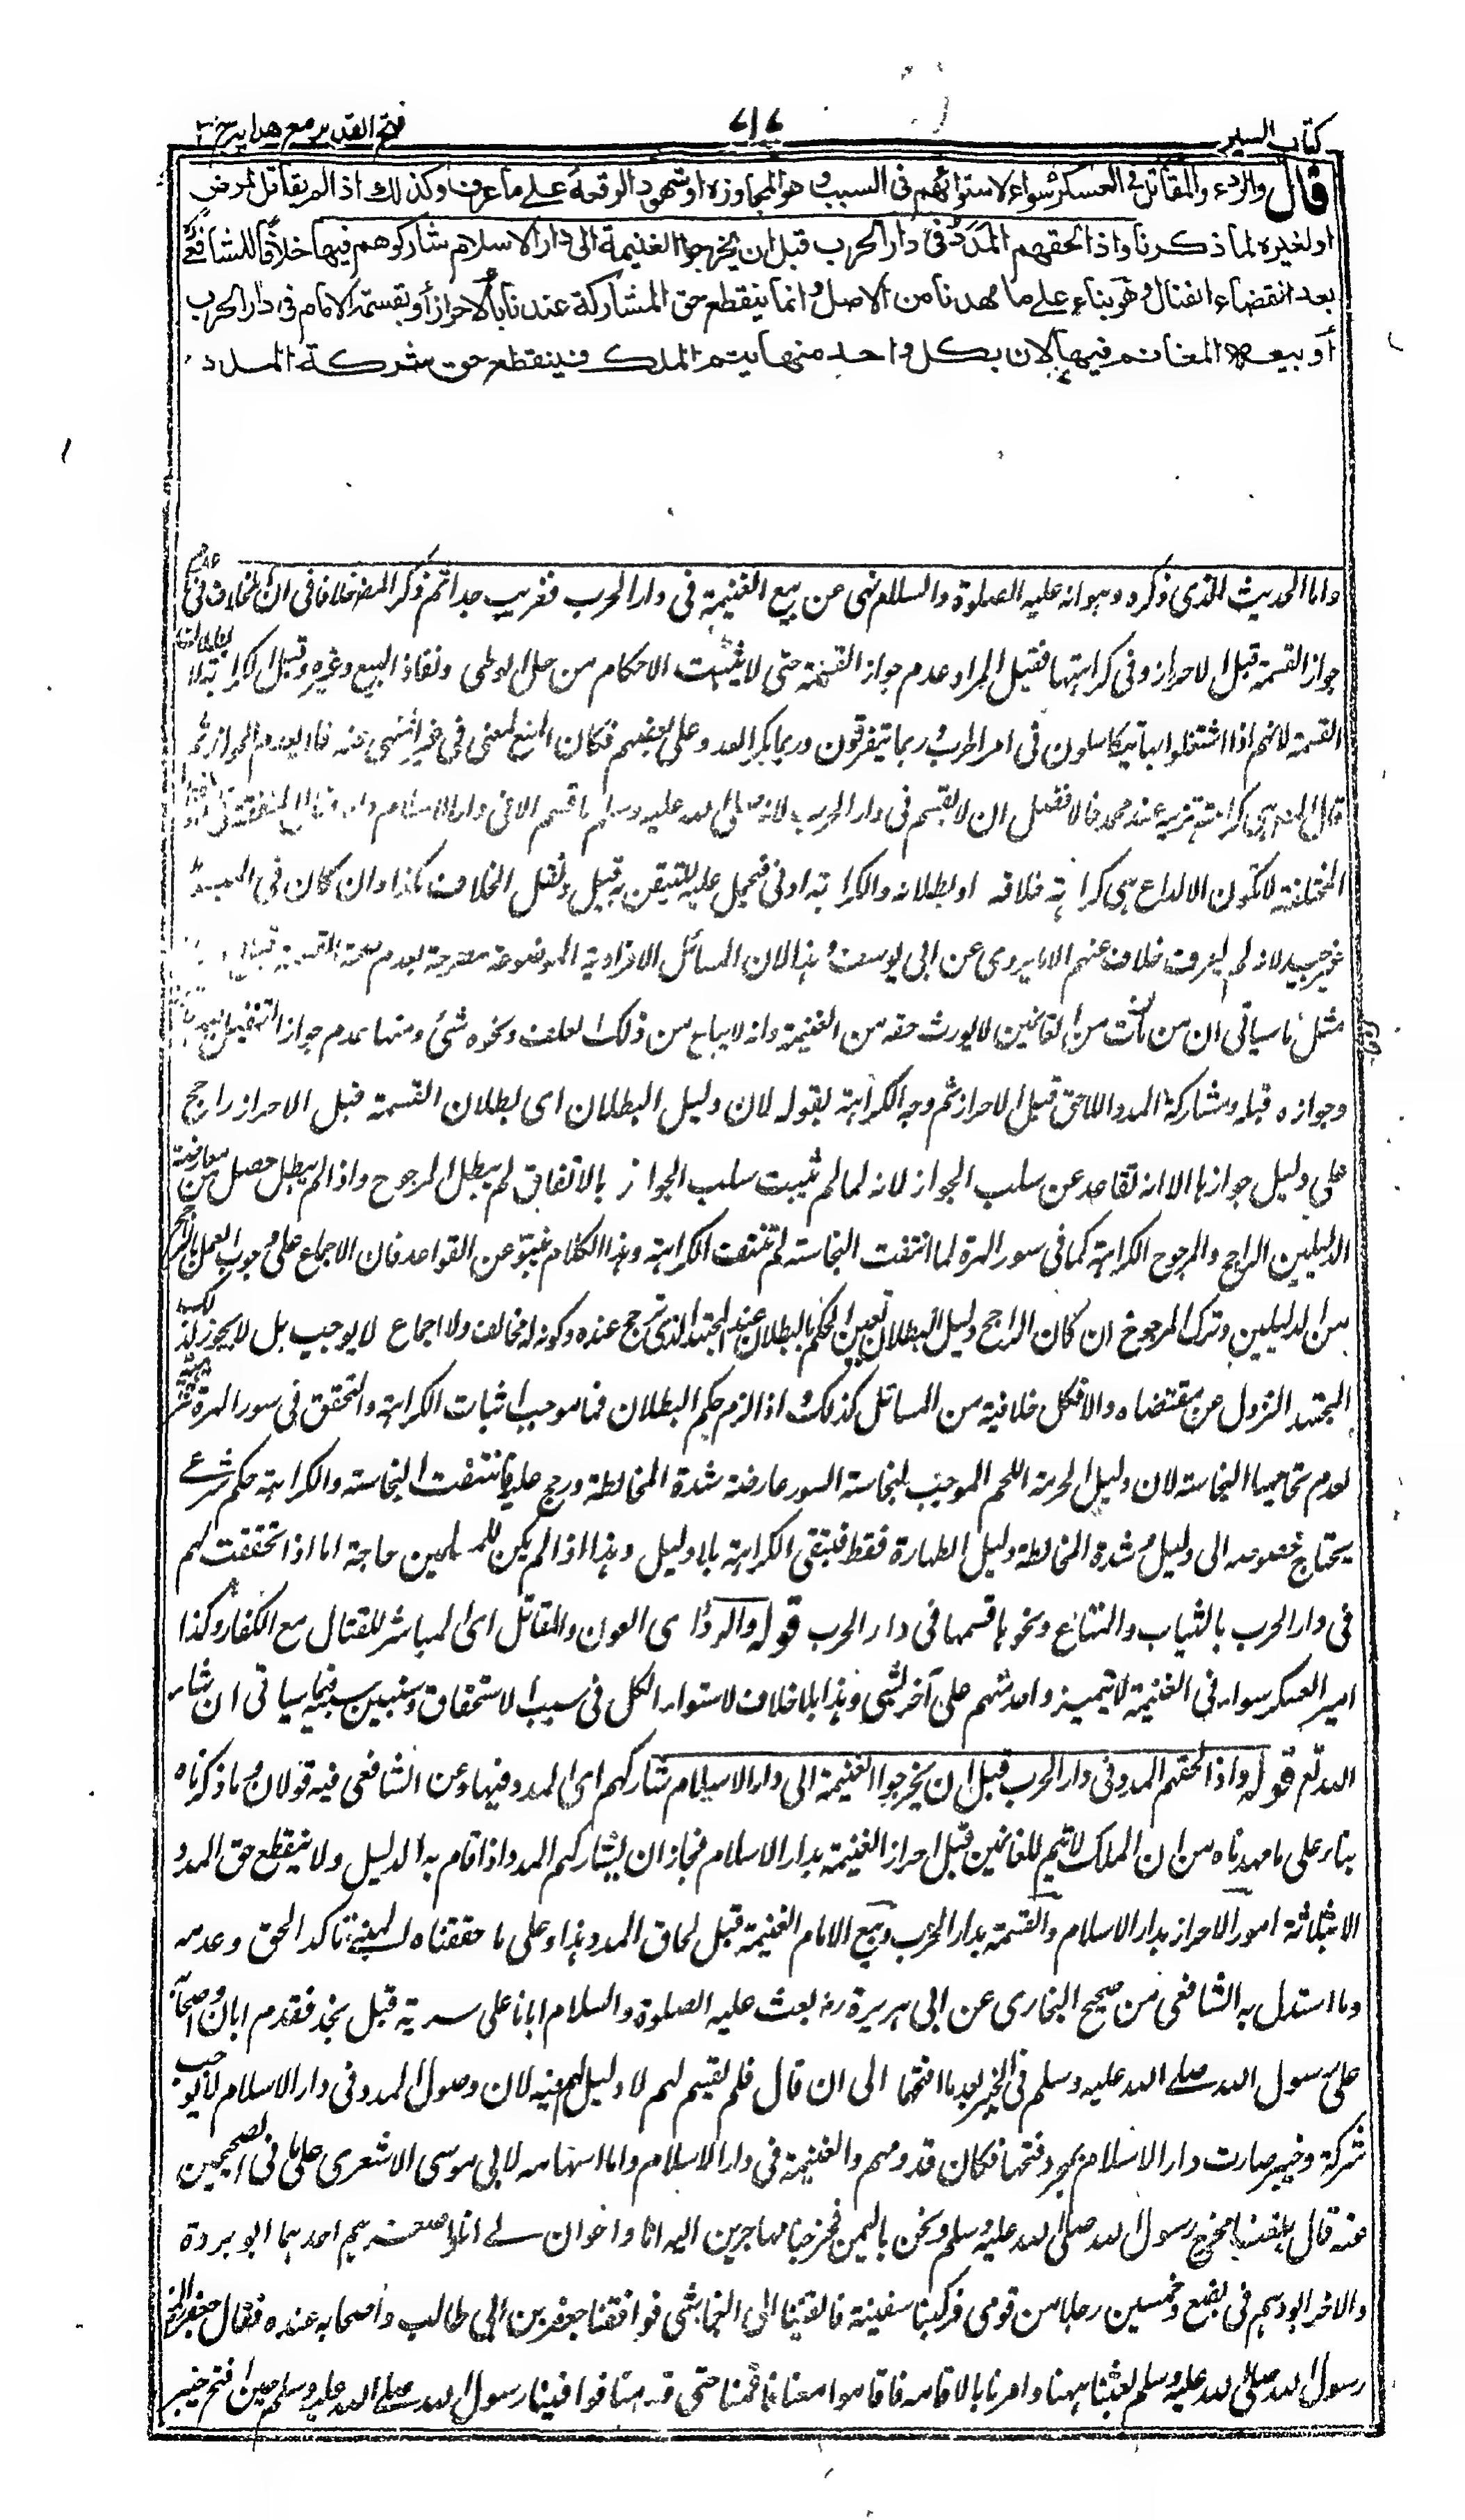 كتاب السير
٧١٧
فتح القدير مع هدايه ج ٢
قال والردء والمقاتل في العسكر سواء لاستوائهم فى السبب وهو المجاوزة او شهود الوقعة على ما عرف وكذلك اذا لم يقاتل لمرض
او لغيره لما ذكرنا واذا لحقهم المدد فى دار الحرب قبل ان يخرجوا الغنيمة الى دار الاسلام شاركوهم فيها خلافا للشافعى
بعد انقضاء القتال وهو بناء على ما مهدنا من الاصل وانما ينقطع حق المشاركة عندنا بالاحراز أو بقسمة الامام فى دار الحرب
أو بيعه المغانم فيها لان بكل واحد منها يتم الملك فينقطع حق شركة المدد
واما الحديث الذى ذكره وهو انه عليه الصلوة والسلام نهى عن بيع الغنيمة فى دار الحرب فغريب جدا ثم ذكر المص خلافا فى ان الخلاف فى
جواز القسمة قبل الاحراز وفى كراهتها فقيل المراد عدم جواز القسمة حتى لا تثبت الاحكام من حل الوطى ونفاذ البيع وغيره وقيل الكراهة لا
القسمة لانهم اذا اشتغلوا بها يتكاسلون فى امر الحرب وربما يتفرقون وربما يكر العدو على بعضهم فكان المنع لمعنى فى غير المنهى عنه فلا يعدم الجواز ثم
قال هى كراهة تنزيه عند محمد فالافضل ان لا يقسم فى دار الحرب لانه صلى الله عليه وسلم ما قسم الا فى دار الاسلام
المختلفة لا تكون الا لداع هى كراهة خلافه او بطلانه والكراهة ادنى فيحمل عليه للتيقن به قيل ونقل الخلاف هكذا وان كان فى
غير جيد لانه لم يعرف خلاف عنهم الا ما يروى عن ابى يوسف وهذا لان المسائل الافرادية الموضوعة مصرحة بعدم صحة القسمة قبل
مثل ما سياتى ان من مات من الغانمين لا يورث حقه من الغنيمة وانه لا يباع من ذلك العلف ونحوه شئ ومنها عدم جواز التنفيل بعد
وجوازه قبله ومشاركة المدد اللاحق قبل الاحراز ثم وجه الكراهة بقوله لان دليل البطلان اى بطلان القسمة قبل الاحراز راجح
على دليل جوازها الا انه تقاعد عن سلب الجواز لانه لما لم يثبت سلب الجواز بالاتفاق لم يبطل المرجوح واذا لم يبطل حصل من معارضة
الدليلين الراجح والمرجوح الكراهة كما فى سور الهرة لما انتفت النجاسة لم تنتف الكراهة وهذا الكلام ينبو عن القواعد فان الاجماع على وجوب العمل بالراجح
من الدليلين وترك المرجوح ان كان الراجح دليل البطلان تعين الحكم بالبطلان عند المجتهد الذى ترجح عنده وكونه له مخالف ولا اجماع لا يوجب بل لا يجوز لذلك
المجتهد النزول عن مقتضاه والا فكل خلافية من المسائل كذلك واذا لزم حكم البطلان فما موجب اثبات الكراهة والتحقق فى سور الهرة
لعدم تحاميها النجاسة لان دليل الحرمة اللحم الموجب لنجاسة السور عارضه شدة المخالطة ورجح عليه فانتفت النجاسة والكراهة حكم شرعى
يحتاج خصوصه الى دليل وشدة المخالطة دليل الطهارة فقط فتبقى الكراهة بلا دليل وهذا اذا لم يكن للمسلمين حاجة اما اذا تحققت لهم
فى دار الحرب بالثياب والمتاع ونحوها قسمها فى دار الحرب قوله والردء اى العون والمقاتل اى المباشر للقتال مع الكفار وكذا
امير العسكر سواء فى الغنيمة لا يتميز واحد منهم على آخر لشئ وهذا بلا خلاف لاستواء الكل فى سبب الاستحقاق وسنبين سببه فيما سياتى ان شاء
الله تعم قوله واذا لحقهم المدد فى دار الحرب قبل ان يخرجوا الغنيمة الى دار الاسلام شاركهم اى المدد فيها وعن الشافعى فيه قولان وما ذكرناه
بناء على ما مهدناه من ان الملك لا يتم للغانمين قبل احراز الغنيمة بدار الاسلام فجاز ان يشاركهم المدد اذا قام به الدليل ولا ينقطع حق المدد
الا بثلاثة امور الاحراز بدار الاسلام والقسمة بدار الحرب وبيع الامام الغنيمة قبل لحاق المدد هذا وعلى ما حققناه المبنى تاكد الحق وعدمه
وما استدل به الشافعى من صحيح البخارى عن ابى هريرة رض بعث عليه الصلوة والسلام ابانا على سرية قبل نجد فقدم ابان واصحابه
على رسول الله صلى الله عليه وسلم فى الخيبر بعد ما افتتحها الى ان قال فلم يقسم لهم لا دليل لهم فيه لان وصول المدد فى دار الاسلام لا يوجب
شركة وخيبر صارت دار الاسلام بمجرد فتحها فكان قدومهم والغنيمة فى دار الاسلام واما اسهامه لابى موسى الاشعرى على ما فى الصحيحين
عنه قال بلغنا مخرج رسول الله صلى الله عليه وسلم ونحن باليمن فخرجنا مهاجرين اليه انا واخوان لى انا اصغرهم احدهما ابو بردة
والاخر ابو رهم فى بضع وخمسين رجلا من قومى فركبنا سفينة فالقتنا الى النجاشى فوافقنا جعفر بن ابى طالب واصحابه عنده فقال جعفر ان
رسول الله صلى الله عليه وسلم بعثنا ههنا وامرنا بالاقامة فاقاموا معنا فاقمنا حتى قدمنا فوافينا رسول الله صلى الله عليه وسلم حين افتتح خيبر